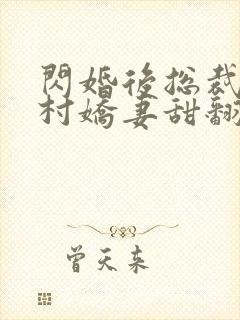 閃婚後總裁
村嬌妻甜翻
曾天來